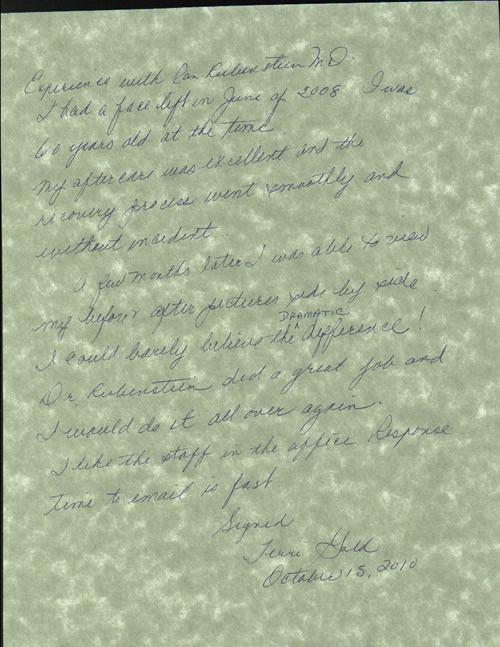 Experience with Ran Rubinstein M.D.
I had a face left in June of 2008 I was
60 years old at the time.
My aftercare was excellent and the
recovery process went smoothly and
without incident.
A few months later I was able to view
my before & after pictures side by side
I could barely believe the DRAMATIC difference!
Dr. Rubenstein did a great job and
I would do it all over again.
I like the staff in the office Response
time to email is fast.
Signed
Terri Gold
October 15, 2010